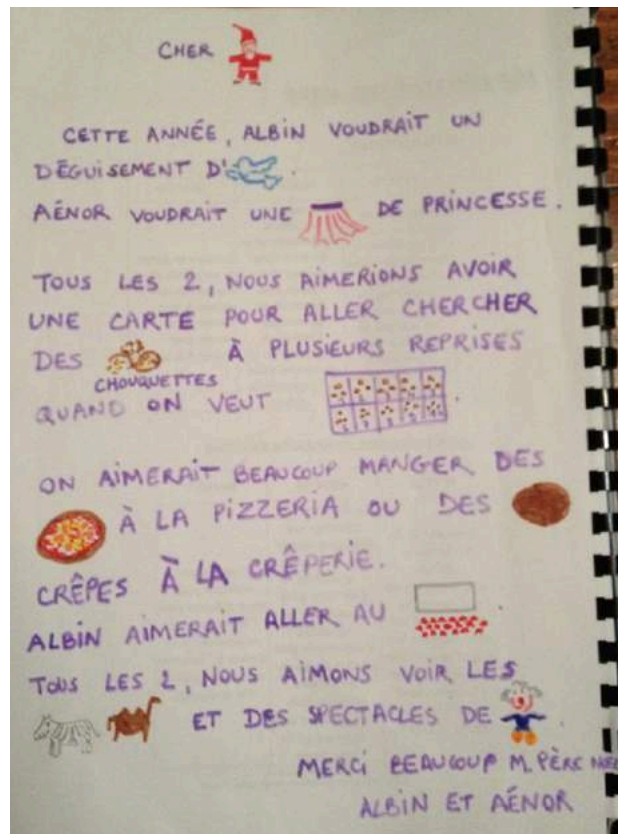 CHER
CETTE ANNÉE, ALBIN VOUDRAIT UN
DÉGUISEMENT D'
AÉNOR VOUDRAIT UNE DE PRINCESSE.
TOUS LES 2, NOUS AIMERIONS AVOIR
UNE CARTE POUR ALLER CHERCHER
DES À PLUSIEURS REPRISES
CHOUQUETTES
QUAND ON VEUT .
ON AIMERAIT BEAUCOUP MANGER DES
À LA PIZZERIA OU DES
CRÊPES À LA CRÊPERIE.
ALBIN AIMERAIT ALLER AU .
TOUS LES 2, NOUS AIMONS VOIR LES
ET DES SPECTACLES DE .
MERCI BEAUCOUP M. PÈRE NOËL
ALBIN ET AÉNOR